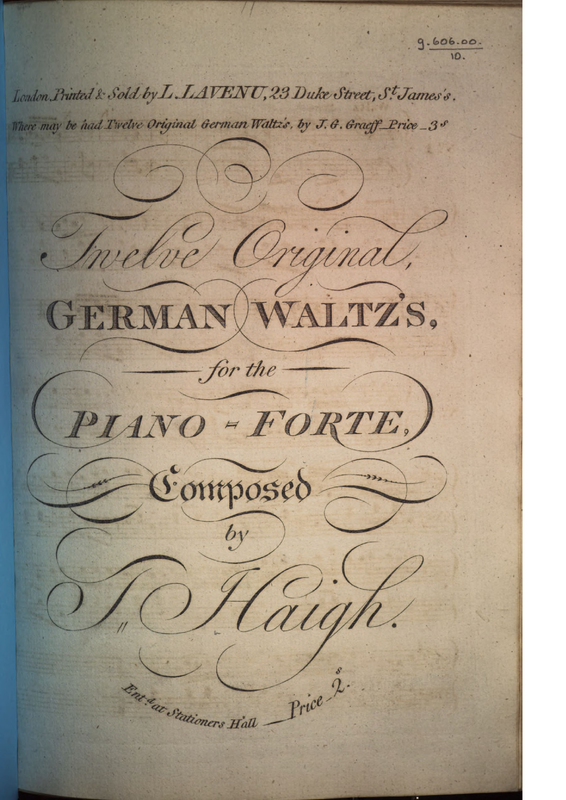 g.606.00.
10.
London Printed & Sold by L. LAVENU, 23 Duke Street, St. James's.
Where may be had Twelve Original German Waltz's, by J. G. Graeff Price 3s
Twelve Original,
GERMAN WALTZ'S,
for the
PIANO = FORTE,
Composed
by
T,, Haigh.
Entd. at Stationers Hall Price 2s.